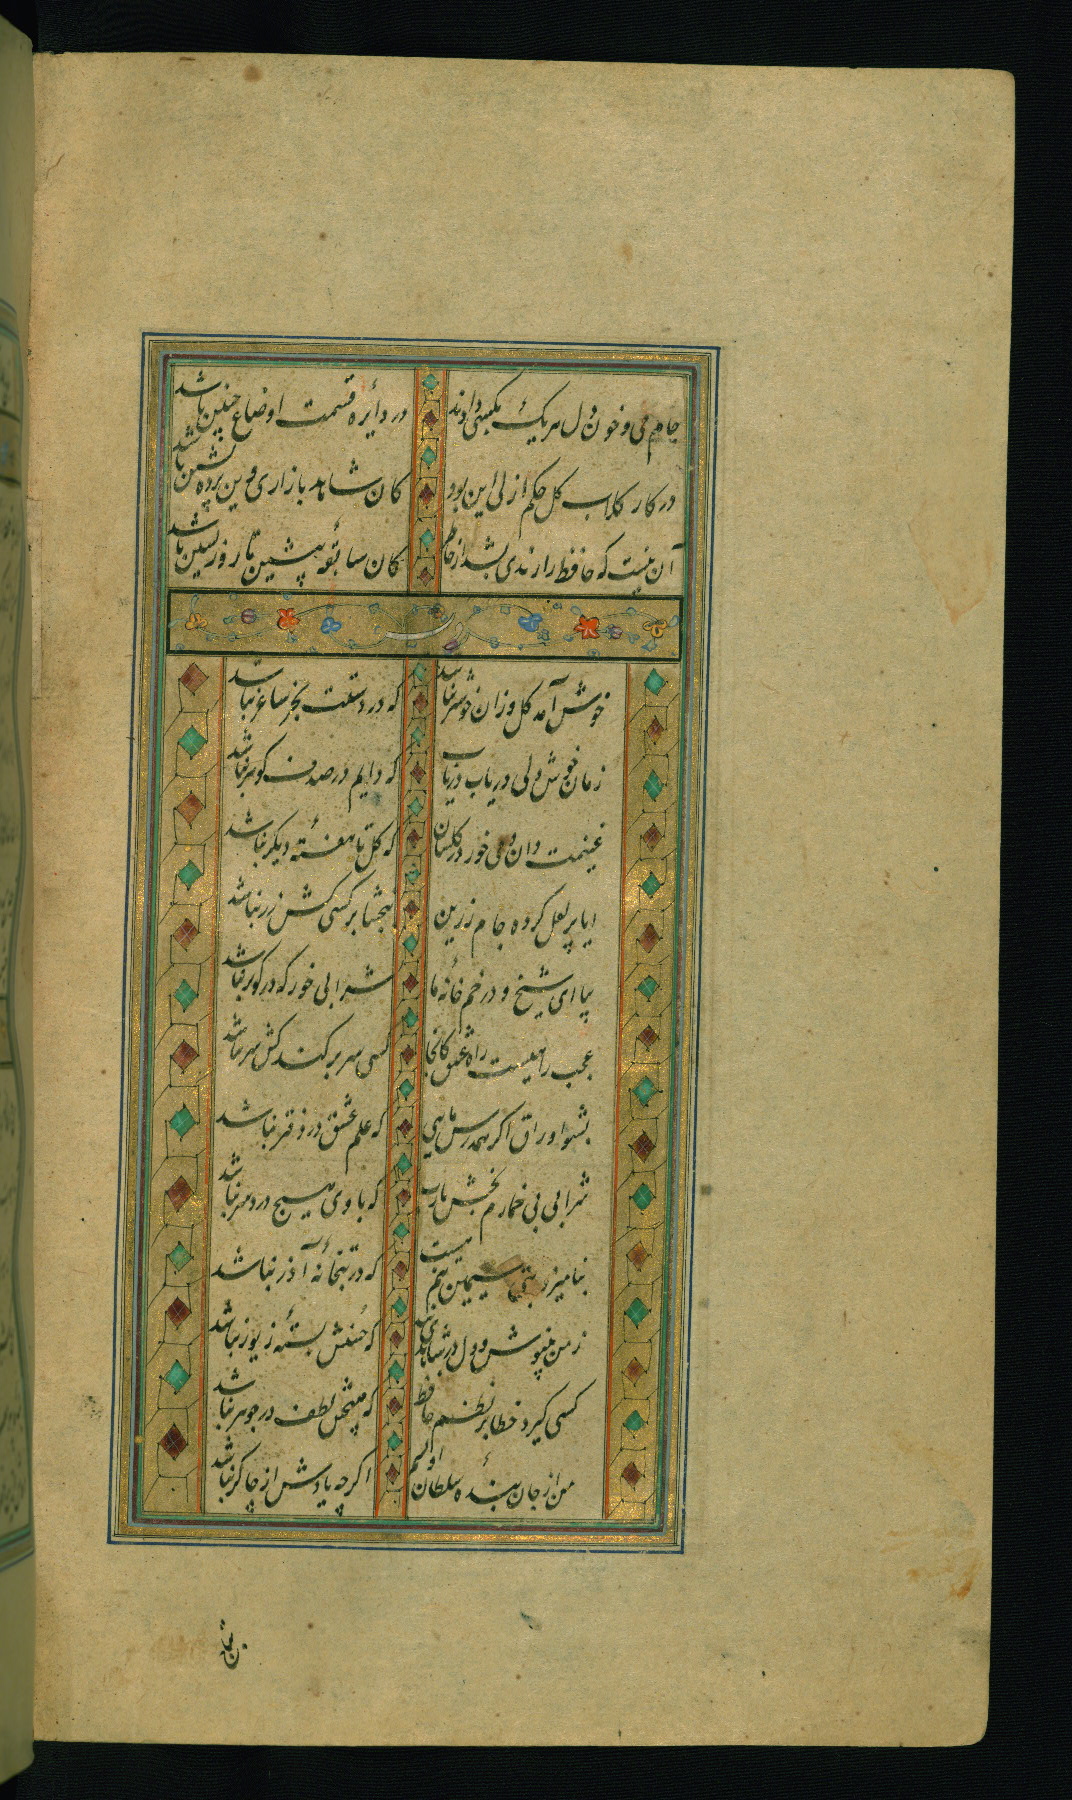 جام می و خون دل هریک بکسی دادند در دایرهٔ قسمت اوضاع چنین باشد
در کار کلاب کل حکم ازلی این بود کان شاهد بازاری وین پرده نشین باشد
آن نیست که حافظ را رندی بشد از خاطر کان سابقهٔ پیشین تا روز پسین باشد
خوش آمد کل وزان خوشتر نباشد که در دستت بجز ساغر نباشد
زمان خوش دلی دریاب دریاب که دایم در صدف کوهر نباشد
غنیمت دان و می خور در کلستان که کل تا هفتهٔ دیکر نباشد
ایا پر لعل کرده جام زرین ببخشا بر کسی کش زر نباشد
بیا ای شیخ و در خم خانهٔ ما شرابی خور که در کوثر نباشد
عجب راهیست راه عشق کانجا کسی سر بر کند کش سر نباشد
بشوا وراق اکر همدرس مایی که علم عشق در دفتر نباشد
شرابی بی خمارم بخش یارب که با وی هیچ درد سر نباشد
بنامیزد بتی سیمین تنم هست که در بتخانهٔ آذر نباشد
ز من بنیوش و دل در شاهدی بند که حسنش بستهٔ زیور نباشد
کسی کیرد خطا بر نظم حافظ که هیچش لطف در جوهر نباشد
من از جان بندهٔ سلطان اویسم اکرچه یادش از چاکر نباشد